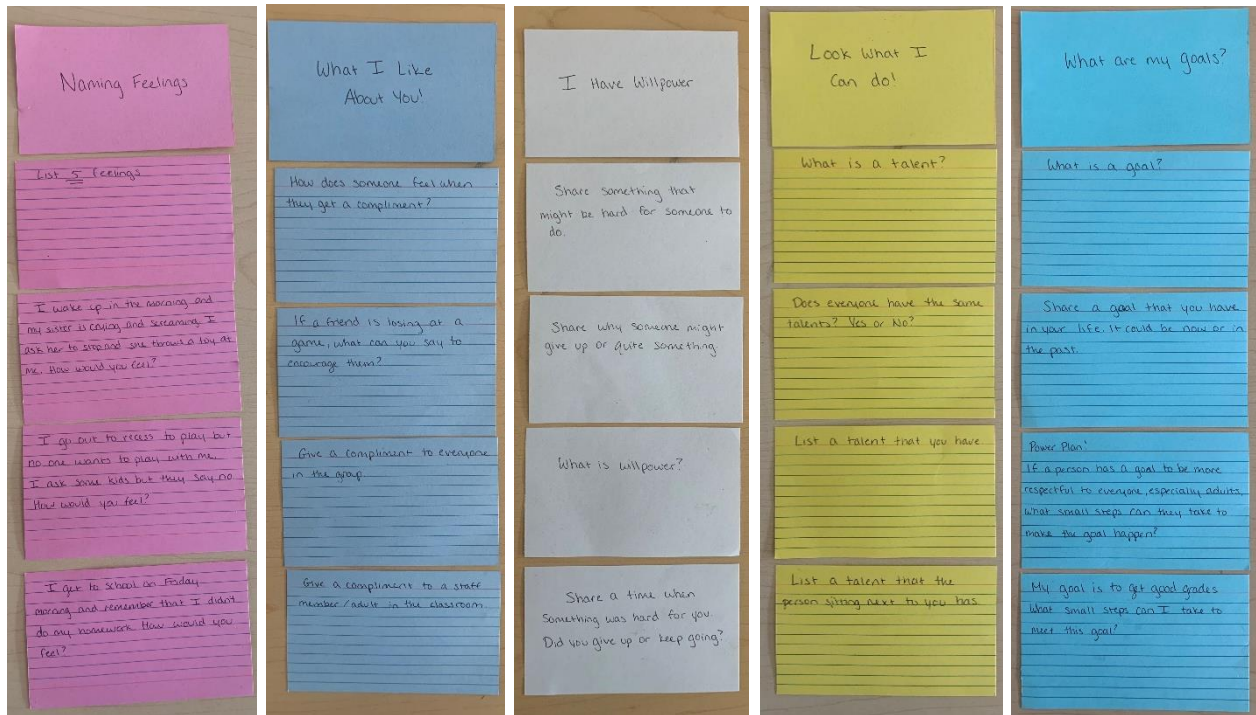 Naming Feelings
List 5 feelings
I wake up in the morning and
my sister is crying and screaming. I
ask her to stop and she throws a toy at
me. How would you feel?
I go out to recess to play but
no one wants to play with me.
I ask some kids but they say no
How would you feel?
I get to school on Friday
morning and remember that I didn't
do my homework. How would you
feel?
What I Like
About You!
How does someone feel when
they get a compliment?
If a friend is losing at a
game, what can you say to
encourage them?
Give a compliment to everyone
in the group.
Give a compliment to a staff
member/adult in the classroom
I Have Willpower
Share something that
might be hard for someone to
do.
Share why someone might
give up or quite something.
What is willpower?
Share a time when
something was hard for you.
Did you give up or keep going?
Look What I
Can do!
What is a talent?
Does everyone have the same
talents? Yes or No?
List a talent that you have
List a talent that the
person sitting next to you has
What are my goals?
What is a goal?
Share a goal that you have
in your life. It could be now or in
the past.
Power Plan:
If a person has a goal to be more
respectful to everyone, especially adults,
what small steps can they take to
make the goal happen?
My goal is to get good grades
What small steps can I take to
meet this goal?